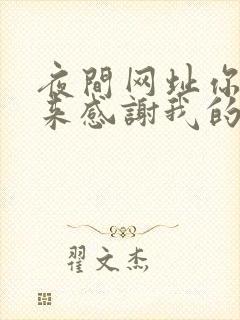 夜間网址你
来感謝我的
翟文杰